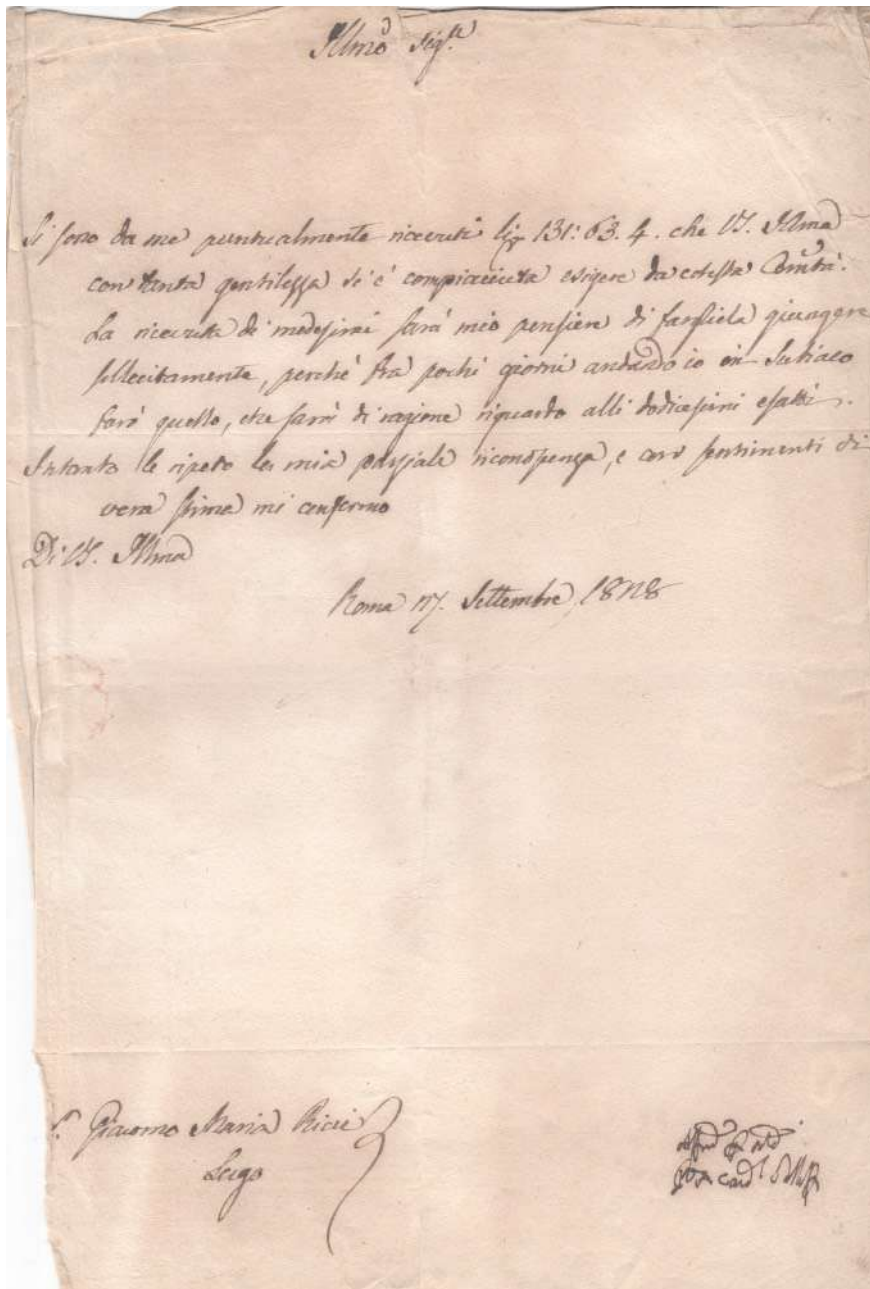 Illmo Sig.re
Si sono da me puntualmente ricevuti 131: 63. 4. che VS. Illma
con tanta gentilezza si è compiaciuta esigere da cotesta Comtà.
La ricevuta di medesimi sarà mio pensiere di fargliela giungere
sollecitamente, perchè frà pochi giorni andando io in Subiaco
farò quello, che sarà di ragione riguardo alli dodicesimi esatti.
Intanto le ripeto la mia parziale riconoscenza, e con sentimenti di
vera stima mi confermo
Di VS. Illma
Roma Settembre
Giacomo Maria Ricci
Lugo
Card.l